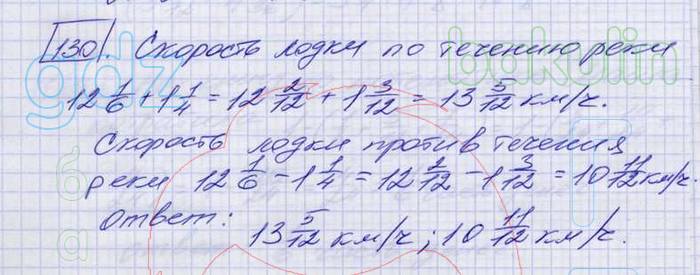 130. Скорость лодки по течению реки
12 1/6 + 1 1/4 = 12 2/12 + 1 3/12 = 13 5/12 км/ч.
Скорость лодки против течения
реки 12 1/6 - 1 1/4 = 12 2/12 - 1 3/12 = 10 11/12 км/ч.
ответ: 13 5/12 км/ч; 10 11/12 км/ч.
gdz
bakulin